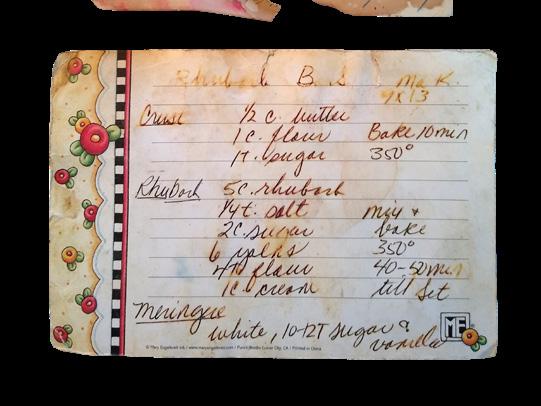 Rhubarb B. S. Ma K.
9x13
Crust 1/2 c. butter
1 c. flour Bake 10 min
1 T. sugar 350°
Rhubarb 5 c. rhubarb
1/4 t. salt mix +
2 c. sugar bake
6 yolks 350°
4 T flour 40-50 min
1 c cream till set
Meringue
white, 10-12 T sugar &
vanilla
ME
© Mary Engelbreit Ink / www.maryengelbreit.com / Punch Studio Culver City, CA / Printed in China